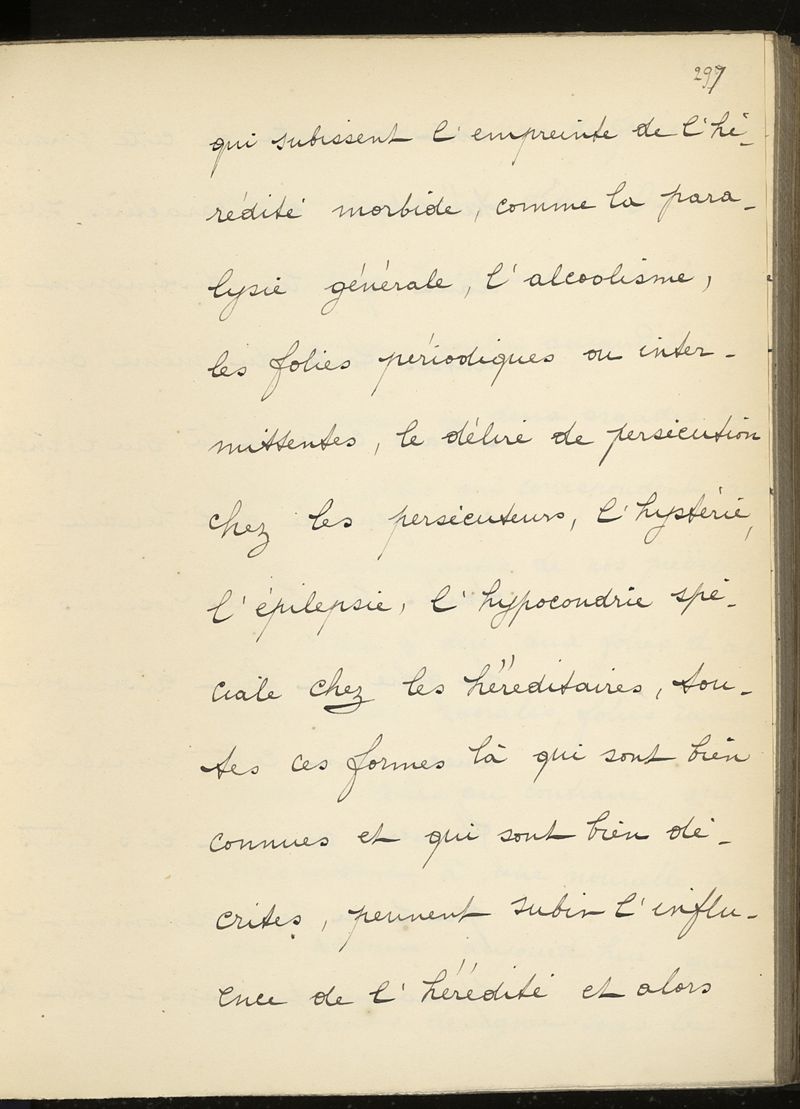 297
qui subissent l'empreinte de l'hé-
rédité morbide, comme la para-
lysie générale, l'alcoolisme,
les folies périodiques ou inter-
mittentes, le délire de persécution
chez les persécuteurs, l'hystérie,
l'épilepsie, l'hypocondrie spé-
ciale chez les héréditaires, tou-
tes ces formes là qui sont bien
connues et qui sont bien dé-
crites, peuvent subir l'influ-
ence de l'hérédité et alors